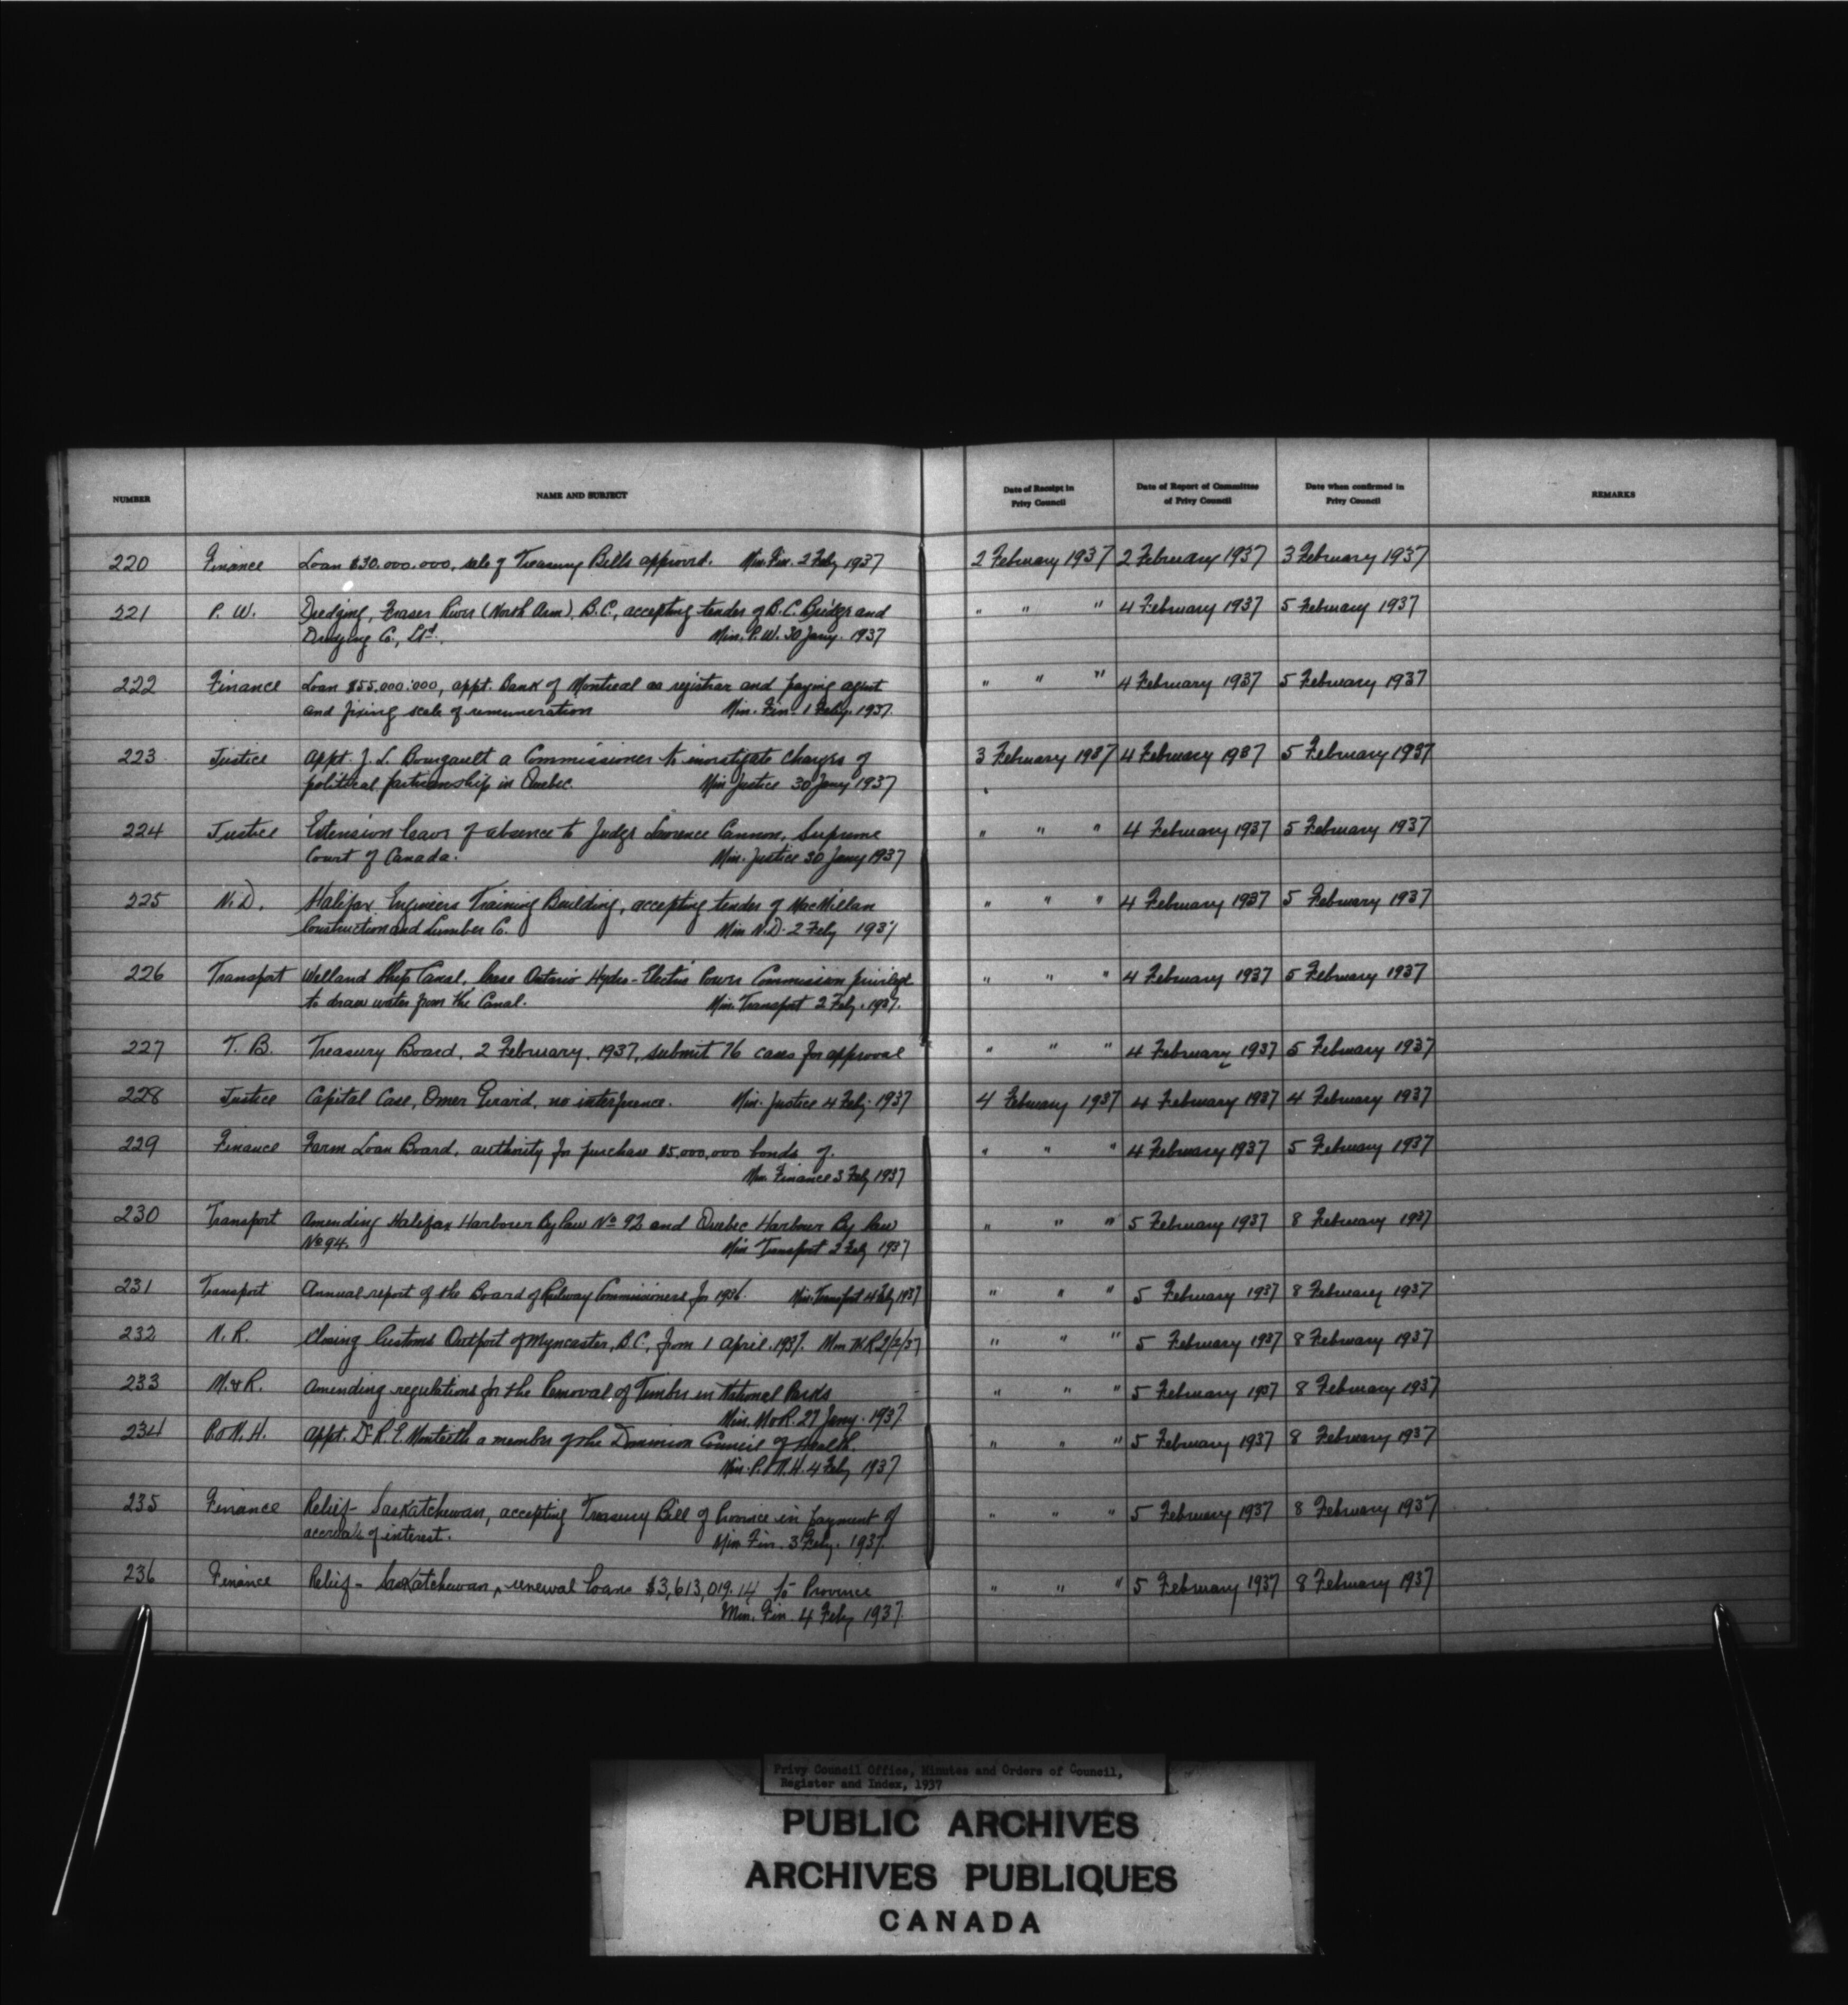 NUMBER NAME AND SUBJECT Date of Receipt in Privy Council Date of Report of Committee of Privy Council Date when confirmed in Privy Council REMARKS
220 Finance Loan $30.000.000, sale of Treasury Bills approved. Min. Fin. 2 Feby 1937 2 February 1937 2 February 1937 3 February 1937
221 P. W. Dredging, Fraser River (North Arm), B.C., accepting tender of B.C. Bridge and " " " 4 February 1937 5 February 1937
Dredging Co., Ltd. Min. P.W. 30 Jany. 1937
222 Finance Loan $55.000.000, appt. Bank of Montreal as registrar and paying agent " " " 4 February 1937 5 February 1937
and fixing scale of remuneration Min. Fin. 1 Feby. 1937.
223 Justice Appt. J. L. Bourgault a Commissioner to investigate charges of 3 February 1937 4 February 1937 5 February 1937
political partisanship in Quebec. Min Justice 30 Jany 1937
224 Justice Extension leave of absence to Judge Lawrence Cannon, Supreme " " " 4 February 1937 5 February 1937
Court of Canada. Min. Justice 30 Jany 1937
225 N.D. Halifax Engineers Training Building, accepting tender of MacMillan " " " 4 February 1937 5 February 1937
Construction and Lumber Co. Min N.D. 2 Feby 1937
226 Transport Welland Ship Canal, lease Ontario Hydro-Electric Power Commission privilege " " " 4 February 1937 5 February 1937
to draw water from the Canal. Min. Transport 2 Feby. 1937.
227 T. B. Treasury Board, 2 February, 1937, submit 76 cases for approval " " " 4 February 1937 5 February 1937
228 Justice Capital Case, Omer Girard, no interference. Min. Justice 4 Feby. 1937 4 February 1937 4 February 1937 4 February 1937
229 Finance Farm Loan Board, authority for purchase $5,000,000 bonds of. " " " 4 February 1937 5 February 1937
Min. Finance 3 Feby 1937
230 Transport Amending Halifax Harbour By law No 92 and Quebec Harbour By law " " " 5 February 1937 8 February 1937
No 94. Min Transport 2 Feby 1937
231 Transport Annual report of the Board of Railway Commissioners for 1936. Min. Transport 4 Feby 1937 " " " 5 February 1937 8 February 1937
232 N. R. Closing Customs Outport of Myncaster, B.C., from 1 April, 1937. Min N.R 2/2/37 " " " 5 February 1937 8 February 1937
233 M.&R. Amending regulations for the Removal of Timber in National Parks " " " 5 February 1937 8 February 1937
Min. M&R. 27 Jany. 1937
234 P.&N.H. Appt. Dr. R. E. Monteith a member of the Dominion Council of Health. " " " 5 February 1937 8 February 1937
Min. P.&N.H. 4 Feby 1937
235 Finance Relief - Saskatchewan, accepting Treasury Bill of Province in payment of " " " 5 February 1937 8 February 1937
accruals of interest. Min. Fin. 3 Feby. 1937.
236 Finance Relief - Saskatchewan, renewal loans $3,613,019.14 to Province " " " 5 February 1937 8 February 1937
Min. Fin. 4 Feby 1937.
Privy Council Office, Minutes and Orders of Council,
Register and Index, 1937
PUBLIC ARCHIVES
ARCHIVES PUBLIQUES
CANADA